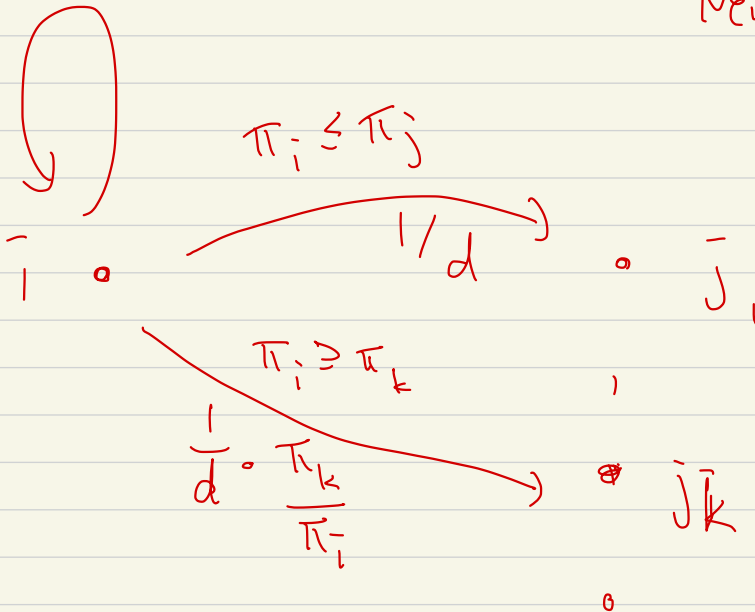 π_i ≤ π_j
1/d
i
j
π_i ≥ π_k
1/d · π_k/π_i
k